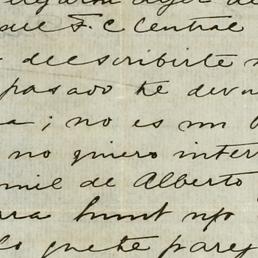 llegaron ayer de
del F. C Central
deescribirte
pasado te devu
a; no es un
no quiero inter
mil de Alberto
para
lo que te pare